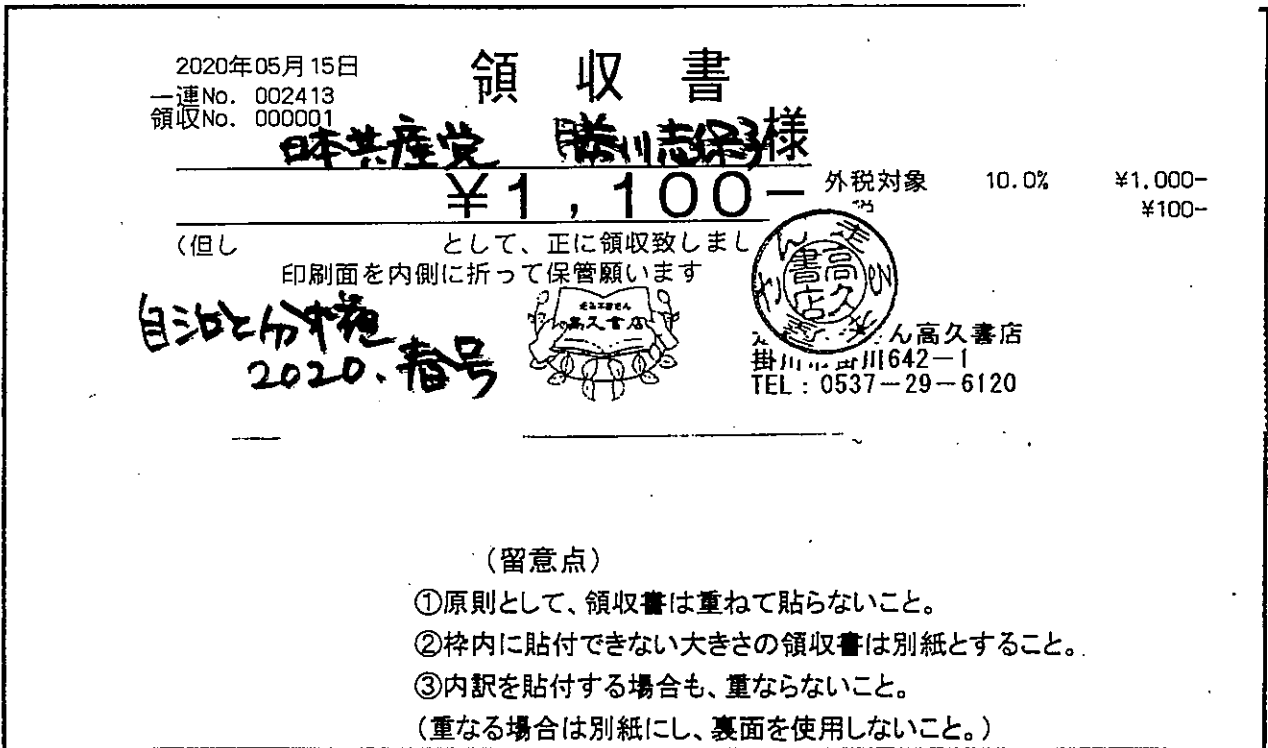 2020年05月15日
領収書
一連No. 002413
領収No. 000001
日本共産党 勝川志保子様
¥1,100-
外税対象 10.0% ¥1,000-
¥100-
(但し として、正に領収致しまし
印刷面を内側に折って保管願います
自治と分権
2020.春号
高久書店
高久書店
ん高久書店
掛川市掛川642-1
TEL:0537-29-6120
(留意点)
①原則として、領収書は重ねて貼らないこと。
②枠内に貼付できない大きさの領収書は別紙とすること。
③内訳を貼付する場合も、重ならないこと。
(重なる場合は別紙にし、裏面を使用しないこと。)